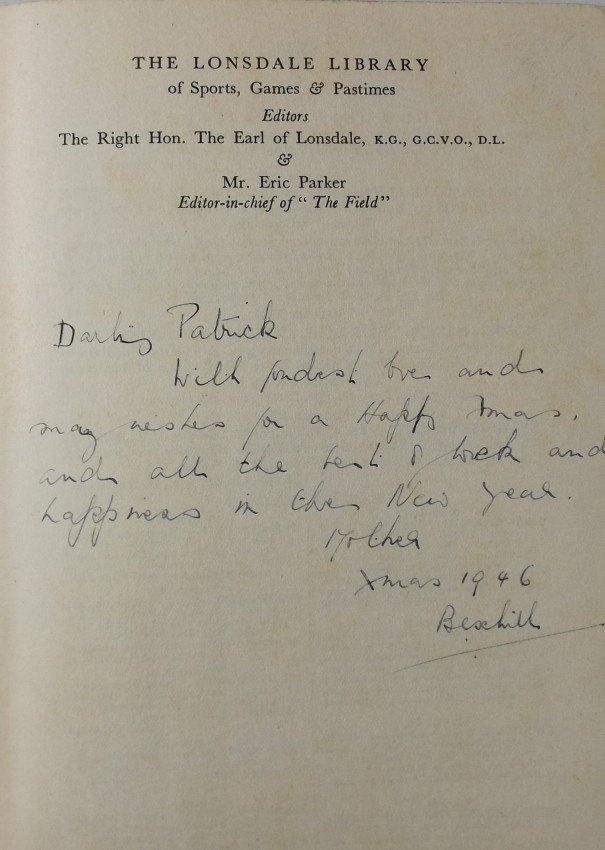 THE LONSDALE LIBRARY
of Sports, Games & Pastimes
Editors
The Right Hon. The Earl of Lonsdale, K.G., G.C.V.O., D.L.
&
Mr. Eric Parker
Editor-in-chief of "The Field"
Darling Patrick
With fondest love and
many wishes for a Happy Xmas.
and all the best of luck and
happiness in the New Year.
Mother
Xmas 1946
Bexhill